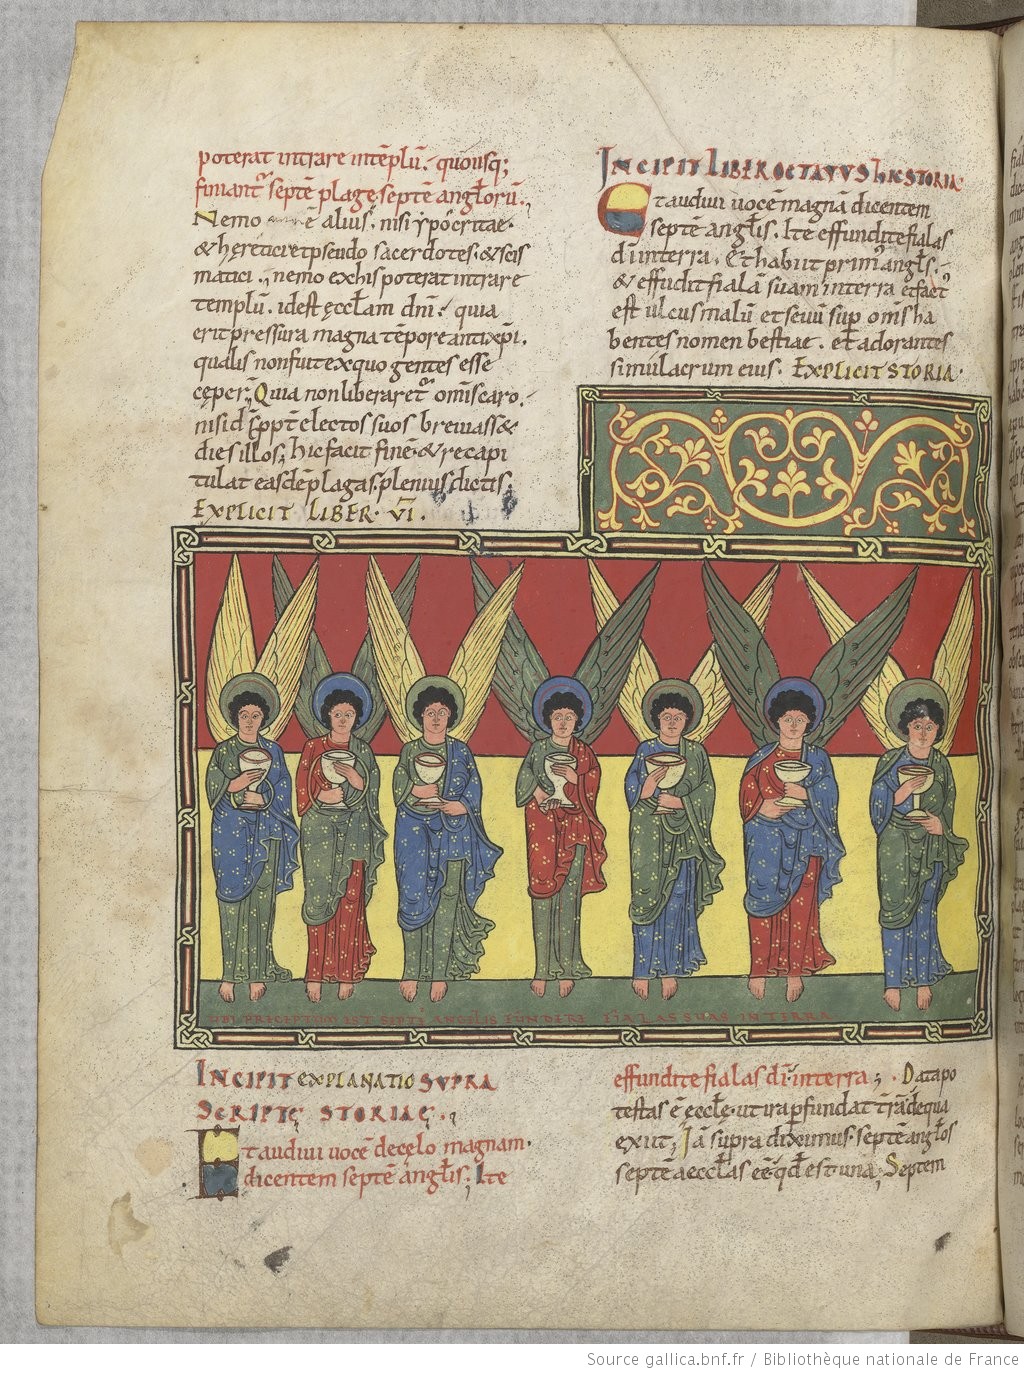 poterat intrare intēplū. quousq;
finiant᷑ septē plagę septē angl̄orū.
Nemo ē alius. nisi ypocritae.
& hęretici et pseudo sacerdotes. & scis
matici. nemo ex his poterat intrare
templū. id est ęccl̄am dnī. quia
erit pressura magna tēpore antixp̄i.
qualis non fuit ex quo gentes esse
cęper̄. Quia non liberaret᷑ om̄is caro.
nisi d̄s ꝓpt electos suos breviass&
dies illos; hic facit finē & recapi
tulat easdē plagas. plenius dictis;
EXPLICIT LIBER. VII.
INCIPIT LIBER OCTAVUS HIESTORIAE
Et audiui uocē magnā dicentem
septē angl̄is. Ite effundite fialas
dī in terra. Et habiit prim᷒ angl̄s.
& effudit fialā suam in terra et fact᷒
est ulcus malū et seuū sup̄ om̄s ha
bentes nomen bestiae. et adorantes
simulacrum eius. EXPLICIT STORIA.
UBI PRECEPTUM EST SEPTĒ ANGELIS FUNDERE FIALAS SUAS IN TERRA
INCIPIT EXPLANATIO SUPRA
SCRIPTĘ STORIAE.
Et audiui uocē de cęlo magnam.
dicentem septē angl̄is; Ite
effundite fialas dī. in terra; Data po
testas ē ęccłę. ut ira ꝑfundat trā de qua
exiit; Iā sup̄ra diximus. septē angl̄os
septē aeccl̄as eē. qd̄ est una; Septem
Source gallica.bnf.fr / Bibliothèque nationale de France